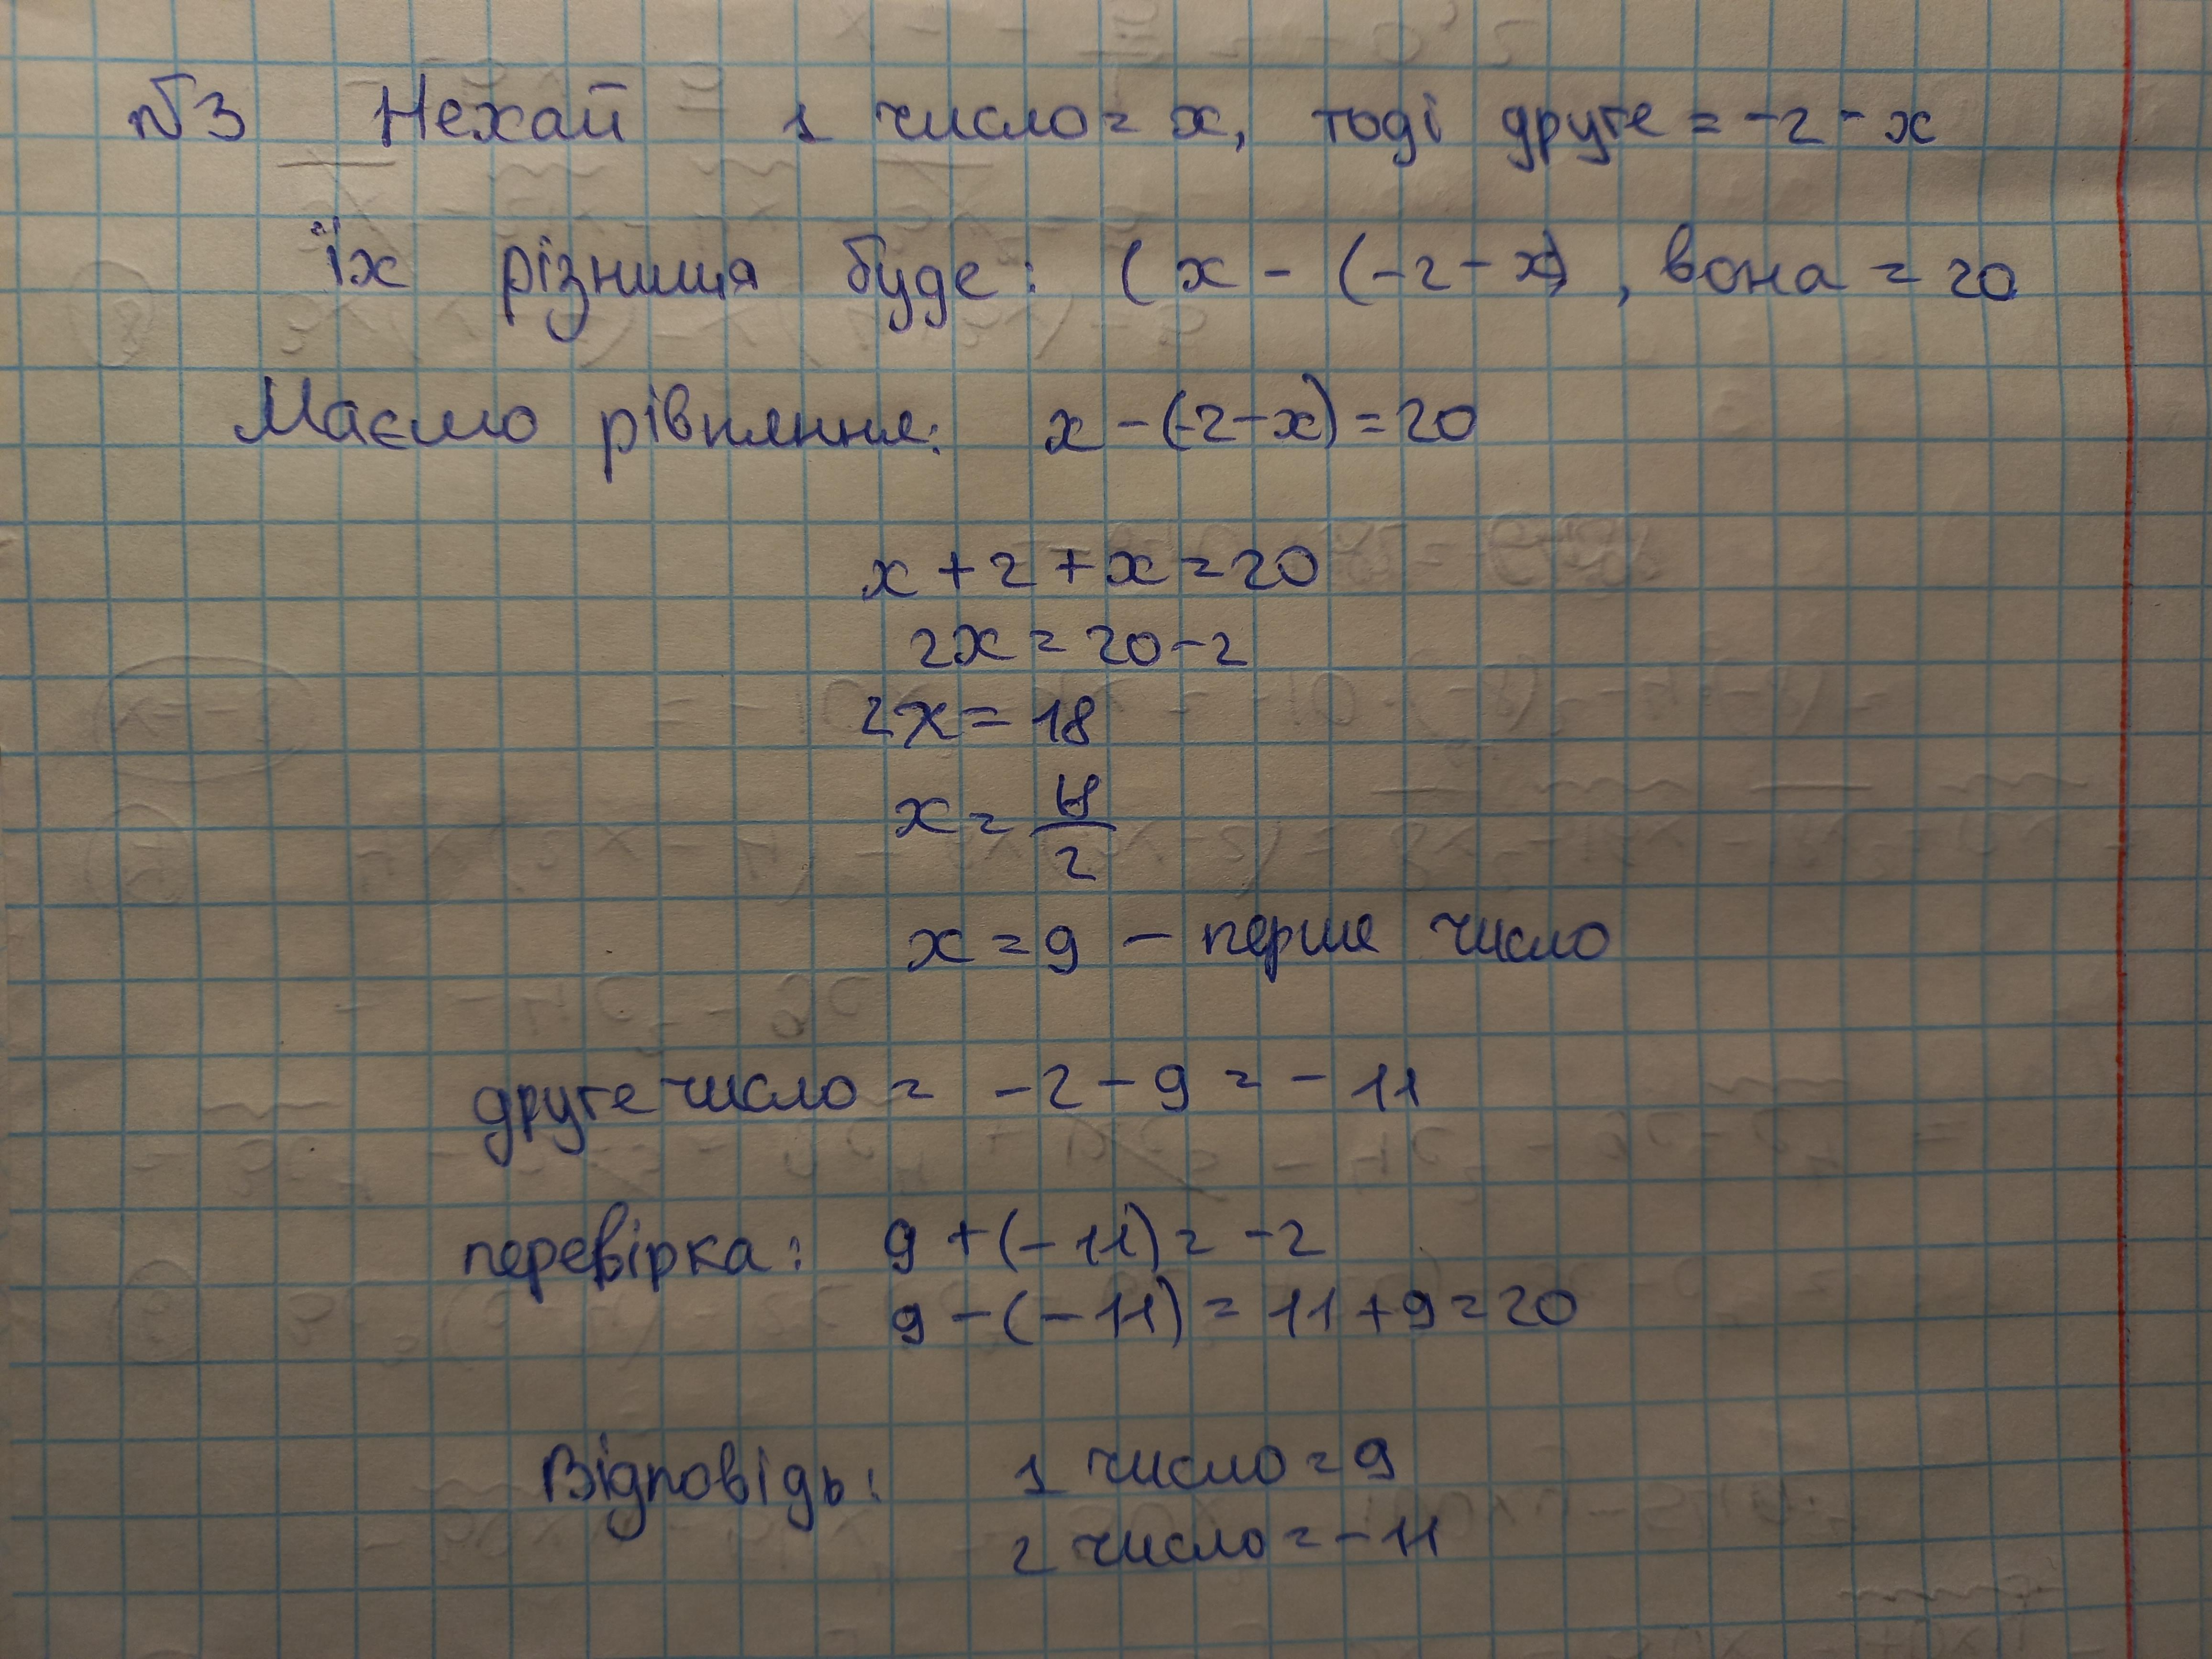 №3 Нехай 1 число = x, тоді друге = -2 - x
їх різниця буде: (x - (-2 - x), вона = 20
Маємо рівняння: x - (-2 - x) = 20
x + 2 + x = 20
2x = 20 - 2
2x = 18
x = 18/2
x = 9 - перше число
друге число = -2 - 9 = - 11
перевірка: 9 + (-11) = -2
9 - (-11) = 11 + 9 = 20
Відповідь: 1 число = 9
2 число = -11